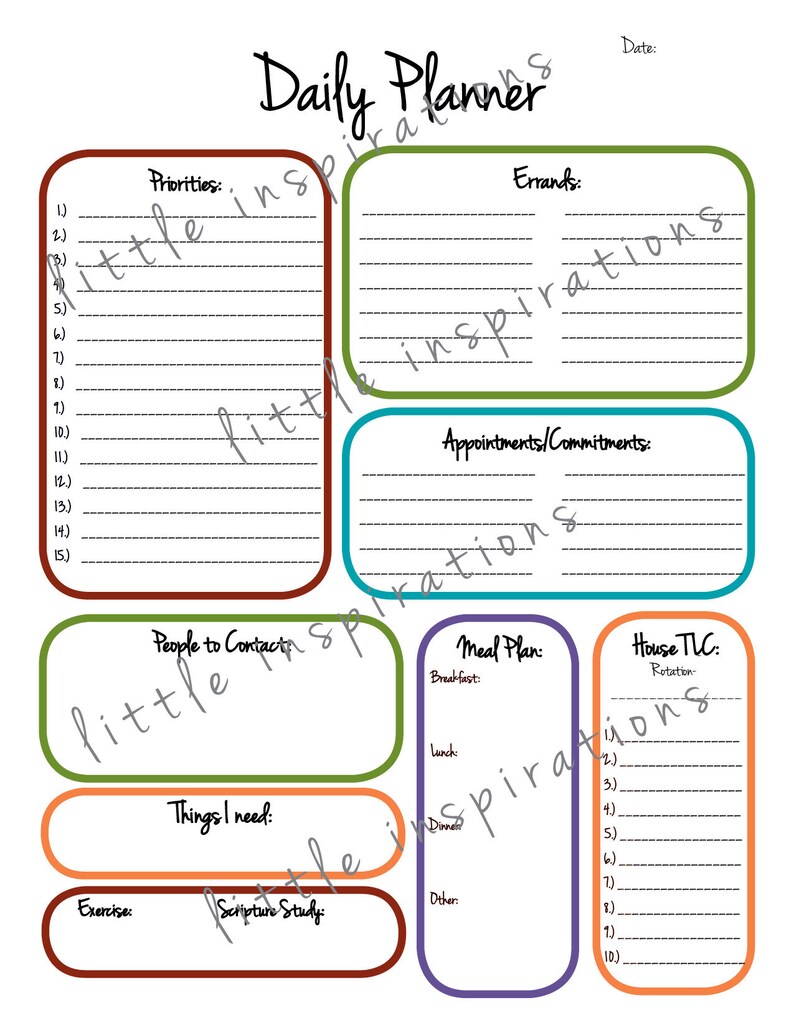 Date:
Daily Planner
Priorities:
1.)
2.)
3.)
4.)
5.)
6.)
7.)
8.)
9.)
10.)
11.)
12.)
13.)
14.)
15.)
Errands:
Appointments/Commitments:
People to Contact:
Things I need:
Exercise:
Scripture Study:
Meal Plan:
Breakfast:
Lunch:
Dinner:
Other:
House TLC:
Rotation-
1.)
2.)
3.)
4.)
5.)
6.)
7.)
8.)
9.)
10.)
little inspirations
little inspirations
little inspirations
little inspirations